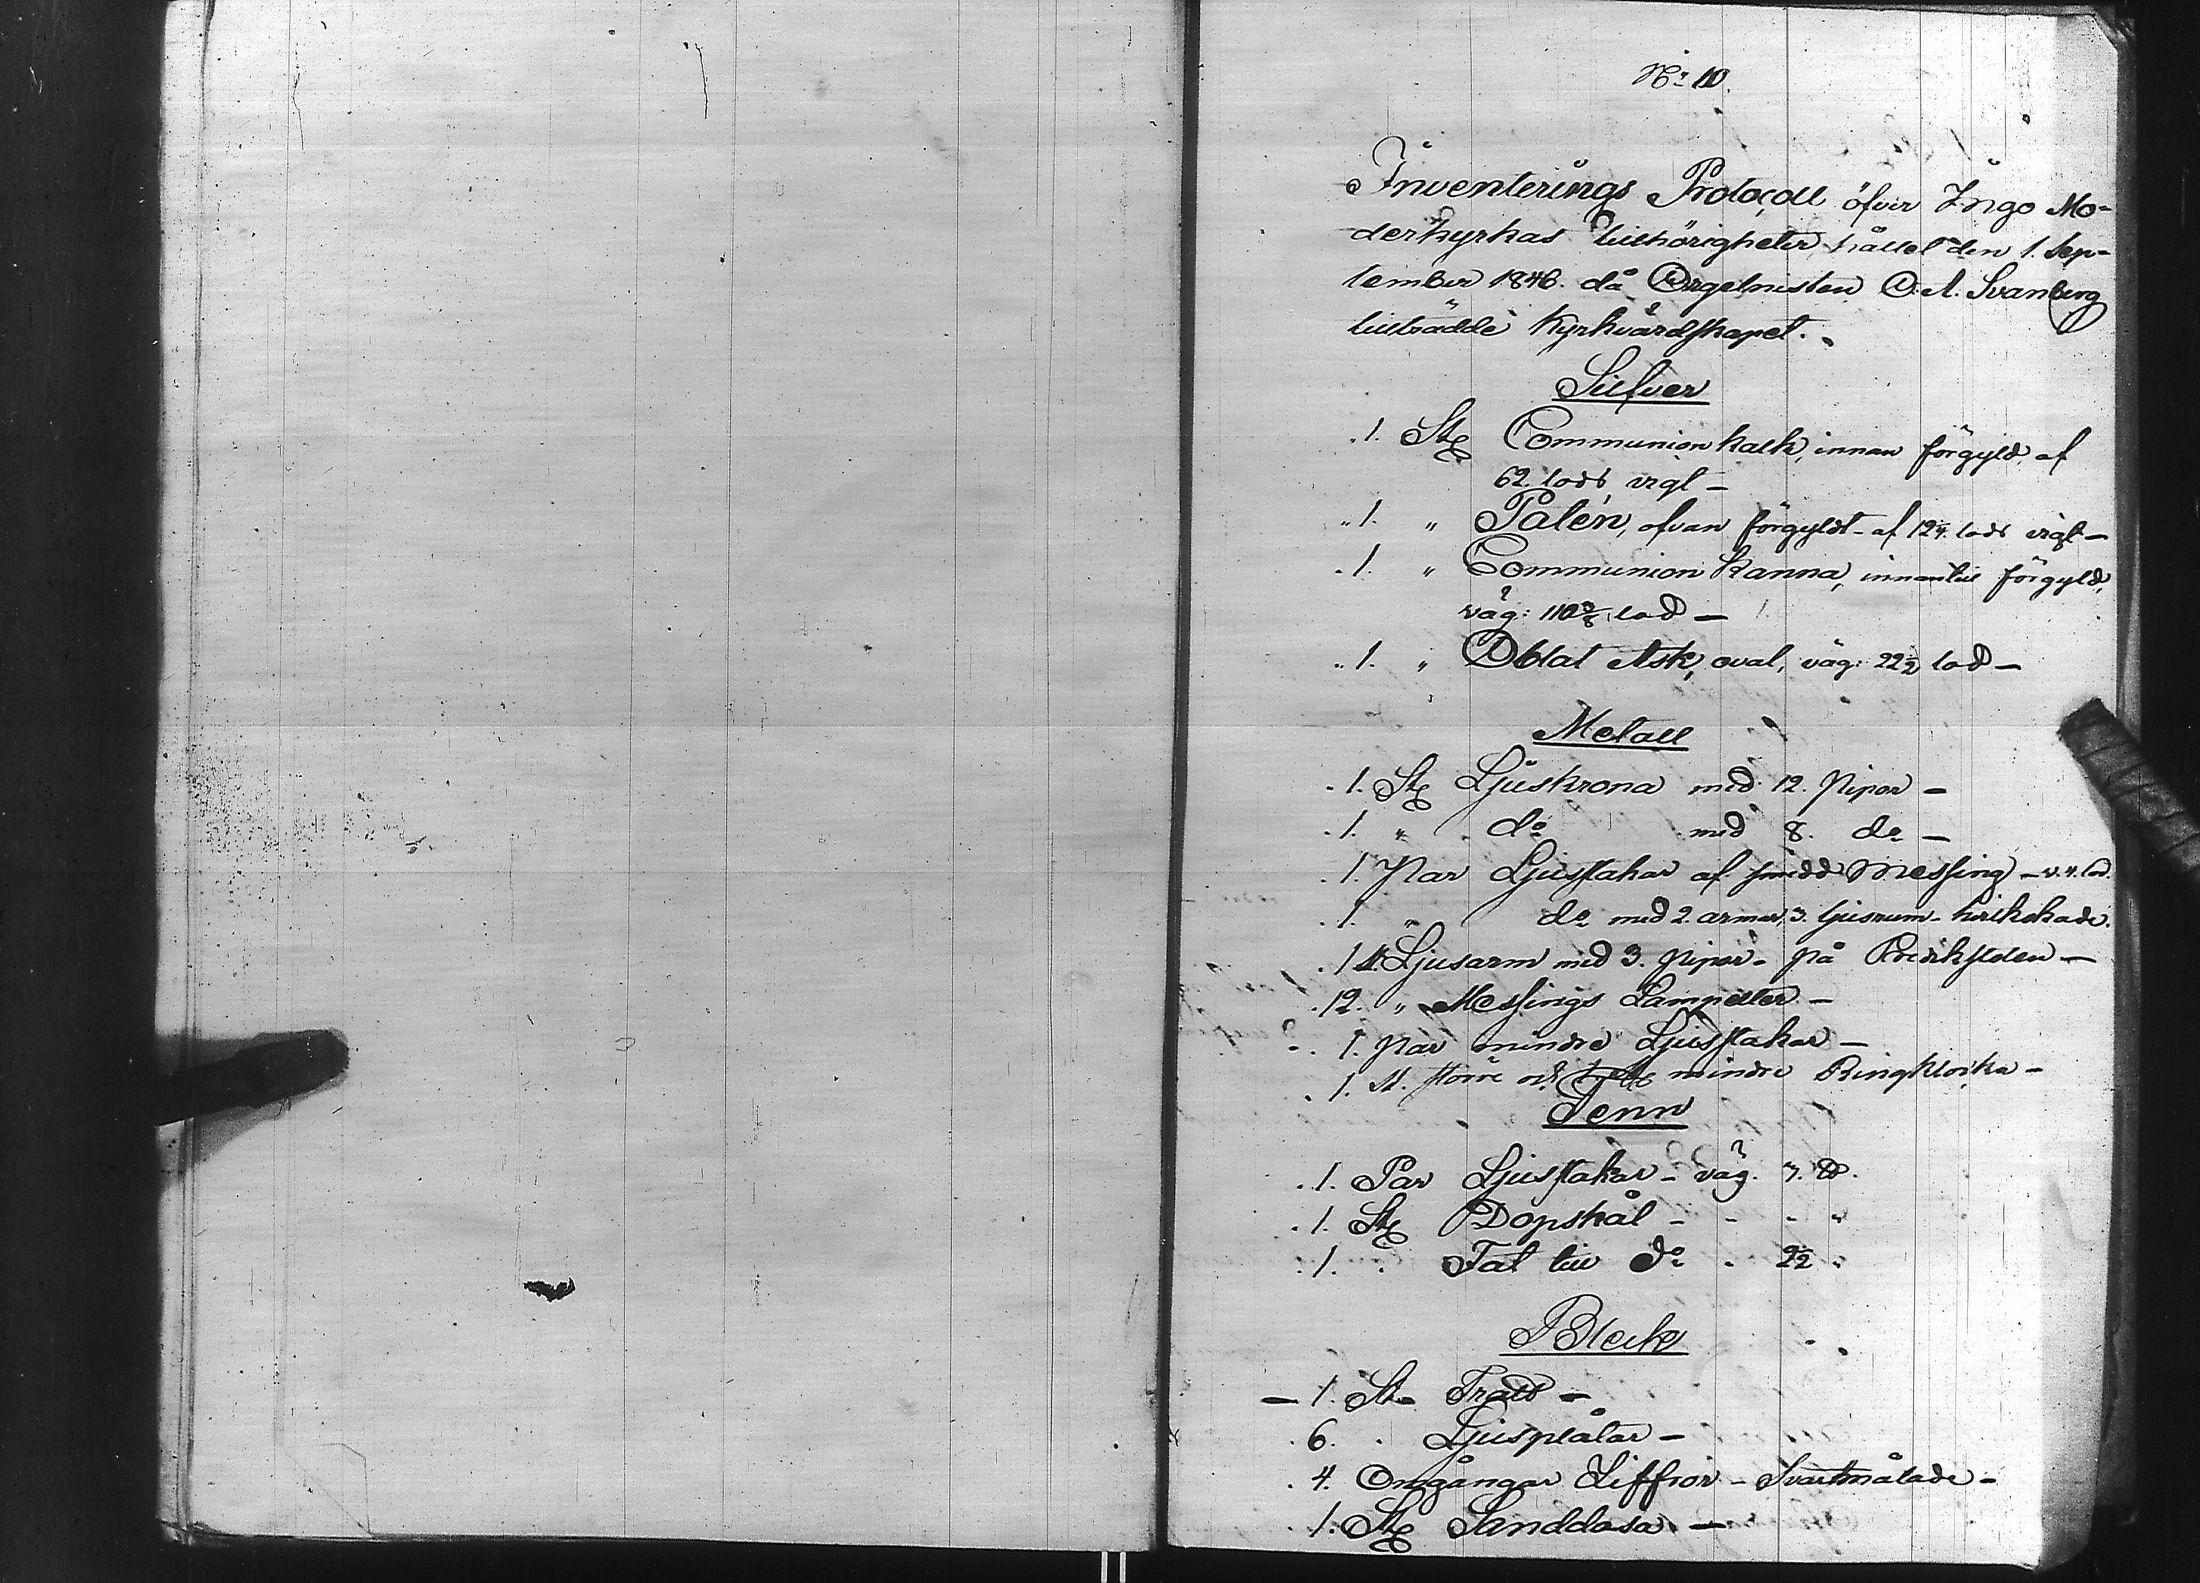 No 10.
Inventerings Protocoll öfver Ingo Mo-
derkyrkas tillhörigheter, hållet den 1. Sep-
tember 1846. då Orgelnisten C. A. Svanberg
tillträdde Kyrkvärdskapet.
Silfver
1. St Communion kalk, innan förgyld, af
62. lods vigt —
1. " Patén, ofvan förgyldt - af 12¼ lods vigt —
1. " Communion Kanna, innantill förgyld,
väg: 110⅜ lod —
1. " Oblat Ask, oval, väg: 22½ lod —
Metall
1. St Ljuskrona med 12. Pipor —
1. " do med 8. do —
1. Par Ljusstakar af smidd Messing —
1. " do med 2. armar, 3. ljusrum -
1 st. Ljusarm med 3. Pipor - på Predikstolen —
12. " Messings Lampetter —
1. Par mindre Ljusstakar —
1. st. större och mindre Ringklocka —
Tenn
1. Par Ljusstakar - väg. 7. ℔.
1. St Dopskål - - - "
1. " Fat till do " 2½ "
Bleck
— 1. St. Tratt —
6. " Ljusplåtar —
4. Omgångar Ziffror - Svartmålade —
1. St Sanddosa —